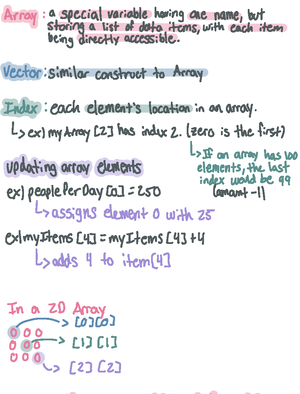 Array: a special variable having one name, but
storing a list of data items, with each item
being directly accessible.
Vector: similar construct to Array
Index: each element's location in an array.
↳ ex) myArray [2] has index 2. (zero is the first)
↳ If an array has 100
elements, the last
index would be 99
(amount -1)
updating array elements
ex) peoplePerDay [0] = 250
↳ assigns element 0 with 25
ex) myItems [4] = myItems [4] + 4
↳ adds 4 to item[4]
In a 2D Array
[0][0]
[1] [1]
[2] [2]